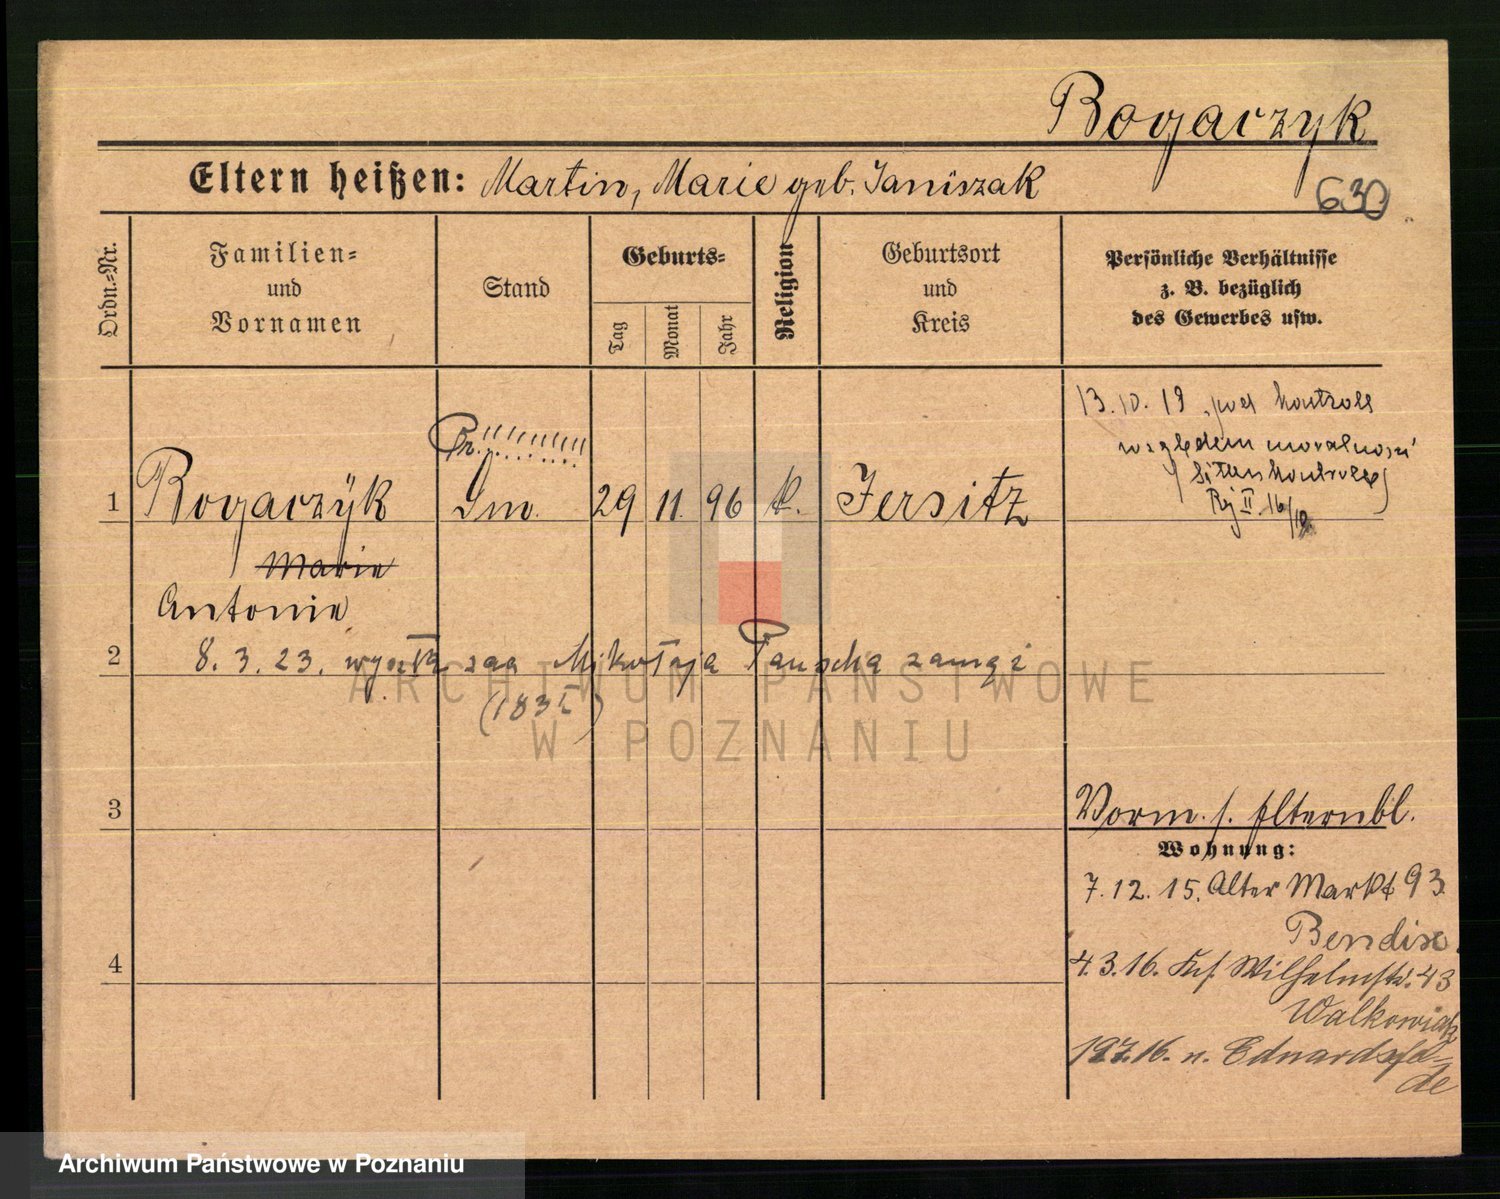 Bogaczyk
Eltern heißen: Martin, Marie geb. Janiszak
630
Ordn.-Nr.
Familien-
und
Vornamen
Stand
Geburts-
Tag
Monat
Jahr
Religion
Geburtsort
und
Kreis
Persönliche Verhältnisse
z. B. bezüglich
des Gewerbes usw.
13.10.19 pod kontrolą
względem moralności
(Sittenkontrolle)
II. 16/19
Pr.
1 Bogaczÿk Dm. 29 11. 96 k. Jersitz
Marie
Antonie
2 8. 3. 23. Mikołaja zamąż
(183 I)
ARCHIWUM PAŃSTWOWE
W POZNANIU
3
Vorm. s. Elternbl.
Wohnung:
7. 12. 15. Alter Markt 93
Bendix.
4
4. 3. 16. Wilhelmstr. 43
Walkowiak
n. Eduardsfel-
de
Archiwum Państwowe w Poznaniu